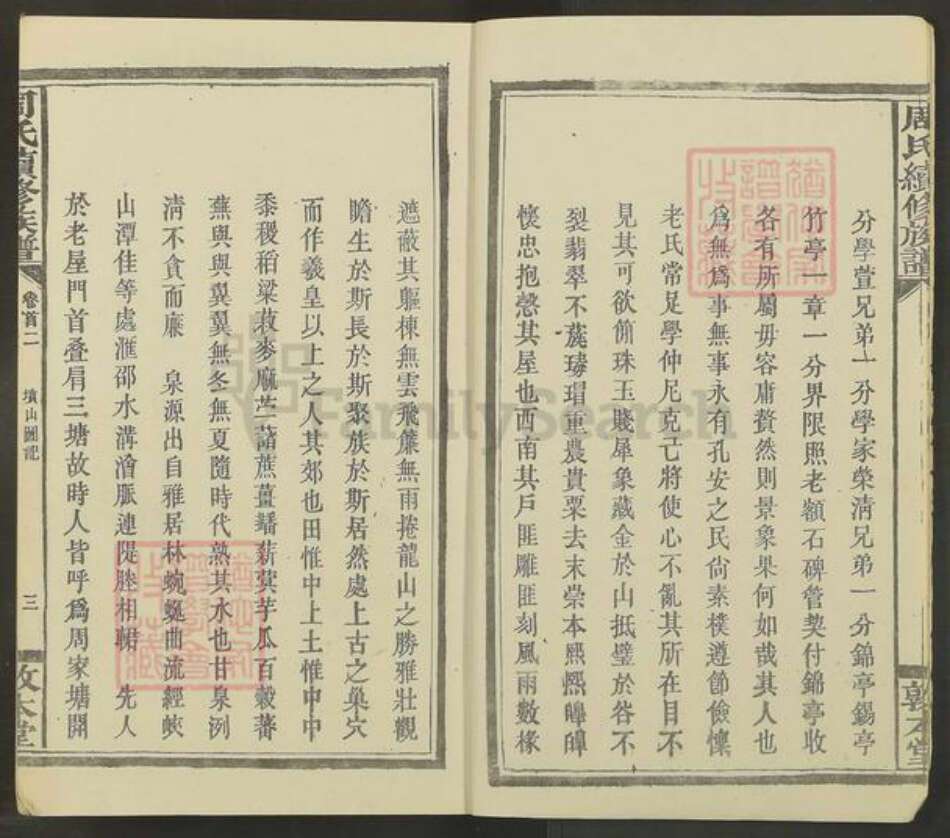 周氏續修族譜
分學萱兄弟一分學家榮淸兄弟一分錦亭錫亭
竹亭一章一分界限照老額石碑管契付錦亭收
各有所屬毋容庸贅然則景象果何如哉其人也
爲無爲事無事永有孔安之民尙素樸遵節儉懍
老氏常足學仲尼克己將使心不亂其所在目不
見其可欲簡珠玉賤犀象藏金於山抵璧於谷不
裂翡翠不蔑瑇瑁重農貴粟去末崇本熙熙皥皥
懷忠抱愨其屋也西南其戶匪雕匪刻風雨數椽
敦本堂
遮蔽其軀棟無雲飛簾無雨捲龍山之勝雅壯觀
瞻生於斯長於斯聚族於斯居然處上古之巢穴
而作羲皇以上之人其郊也田惟中上土惟中中
黍稷稻粱菽麥麻苧藷蔗薑蟠薪蓂芋瓜百穀蕃
蕪與與翼翼無冬無夏隨時代熟其水也甘泉洌
淸不貪而廉 泉源出自雅居林蜿蜒曲流經峽
山潭佳等處滙邵水溝澮脈連隄塍相轕 先人
於老屋門首叠肩三塘故時人皆呼爲周家塘開
周氏續修族譜
卷首二
墳山圖記
三
敦本堂
FamilySearch